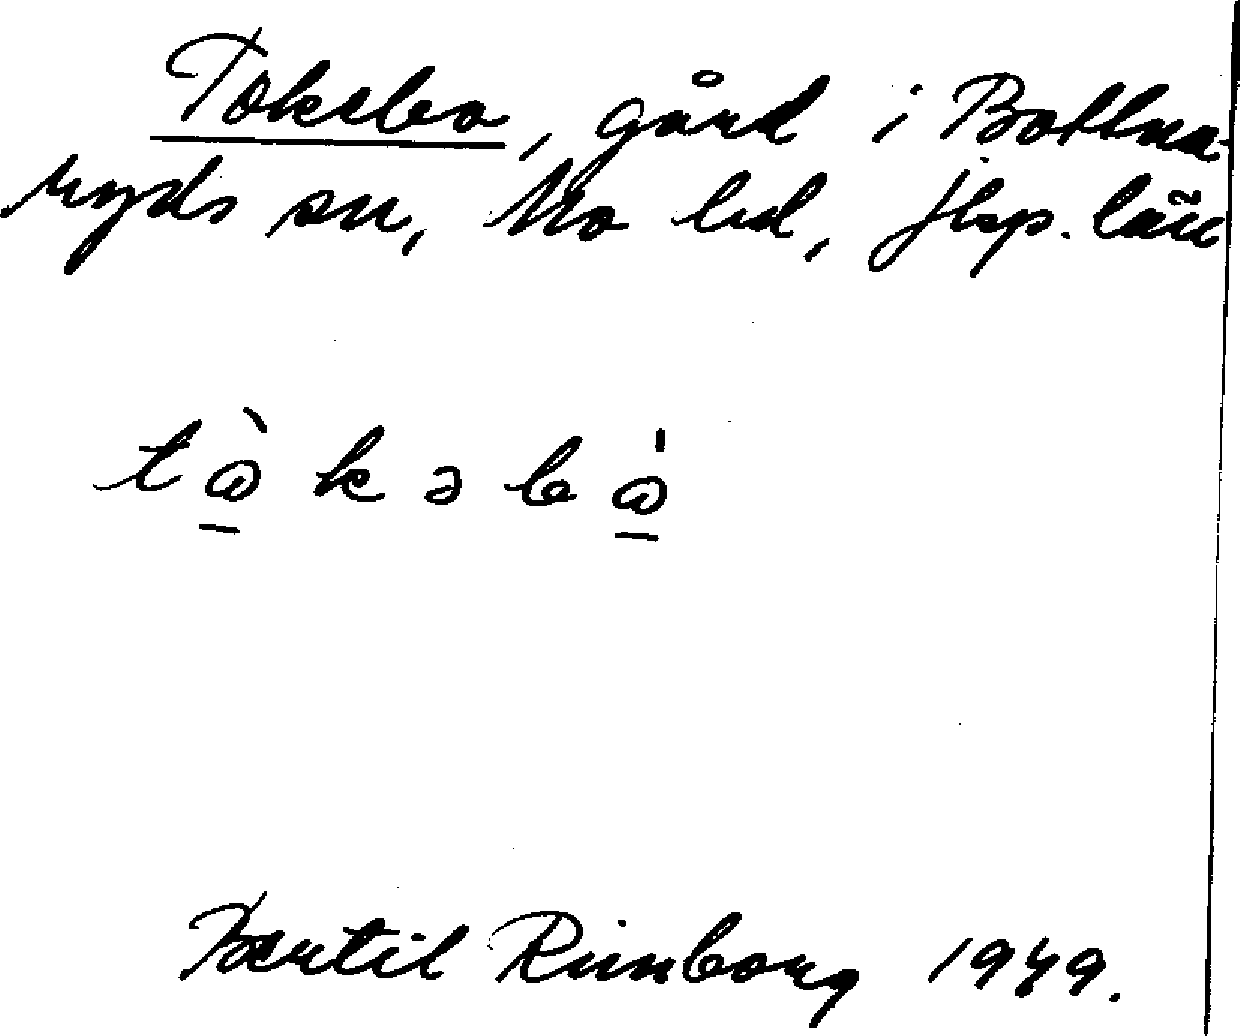 Tokebo, gård i Bottna-
ryds sn, Mo hd, Jkp. län
tὼ̲kəbώ̲
Bertil Rimborg 1949.